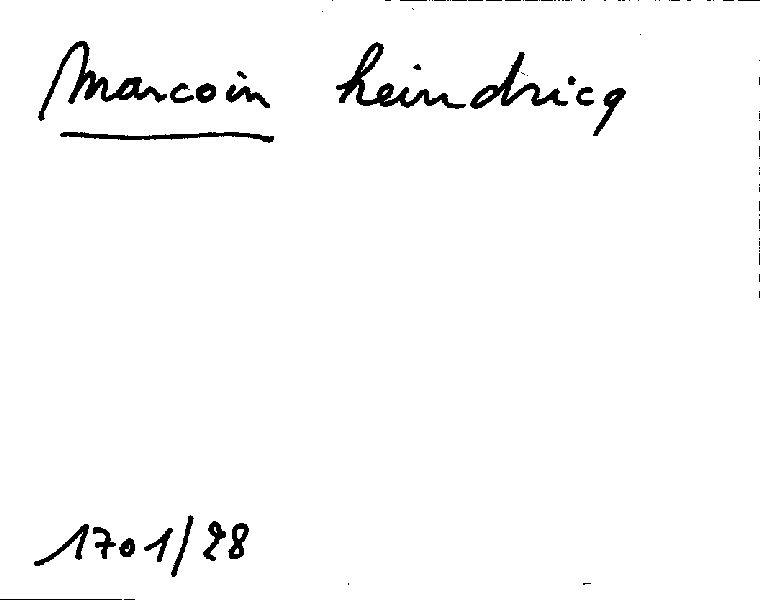 Marcoin heindricq
1701/28